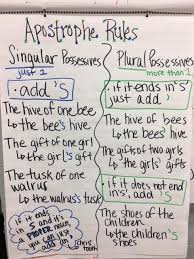 Apostrophe Rules
Singular Possessives
just 1
• add 's
The hive of one bee
↳ the bee's hive
The gift of one girl
↳ the girl's gift
The tusk of one
walrus
↳ the walrus's tusk
if it ends
in s and it's
a PROPER noun,
you can just
add an '
chris'
tooth
Plural Possessives
more than 1
• if it ends in "s"
just add '
The hive of bees
↳ the bees' hive
The gift of two girls
↳ the girls' gift
• if it does not end
in s, add 's
The shoes of the
children
↳ the children's
shoes